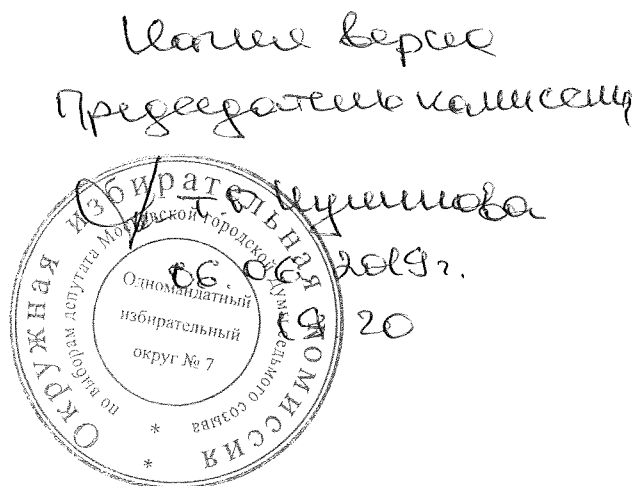 Копия верна
Председатель комиссии
06.06.2019г.
19 20
Окружная избирательная комиссия
по выборам депутата Московской городской Думы седьмого созыва
Одномандатный
избирательный
округ № 7